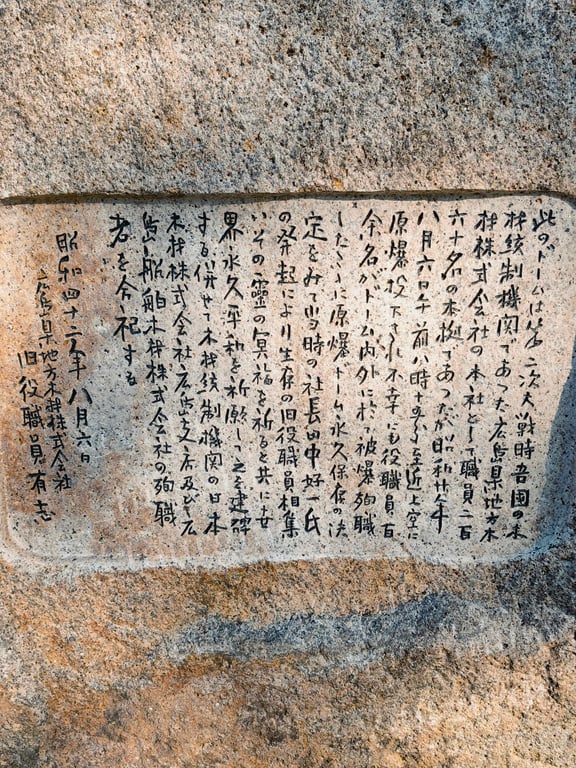 此のドームは第二次大戦時吾国の木
材統制機関であった広島県地方木
材株式会社の本社として職員二百
六十名の本拠であったが昭和廿年
八月六日午前八時十五分至近上空に
原爆投下され不幸にも役職員百
余名がドーム内外に於て被爆殉職
したここに原爆ドーム永久保存の決
定をみて当時の社長田中好一氏
の発起により生存の旧役職員相集
いその霊の冥福を祈ると共に世
界永久平和を祈願し之を建碑
する併せて木材統制機関の日本
木材株式会社広島支店及び広
島船舶木材株式会社の殉職
者を合祀する
昭和四十二年八月六日
広島県地方木材株式会社
旧役職員有志